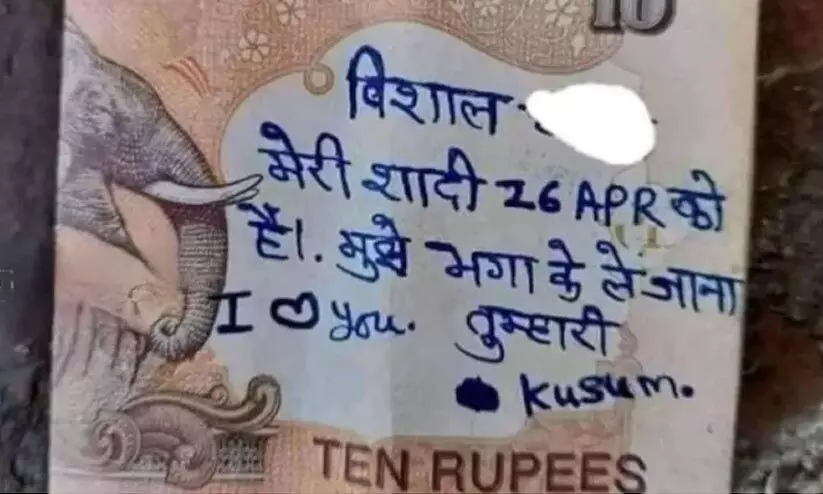 10
विशाल
मेरी शादी 26 APR को
है।. मुझे भगा के ले जाना
I ♡ you. तुम्हारी
Kusum.
TEN RUPEES